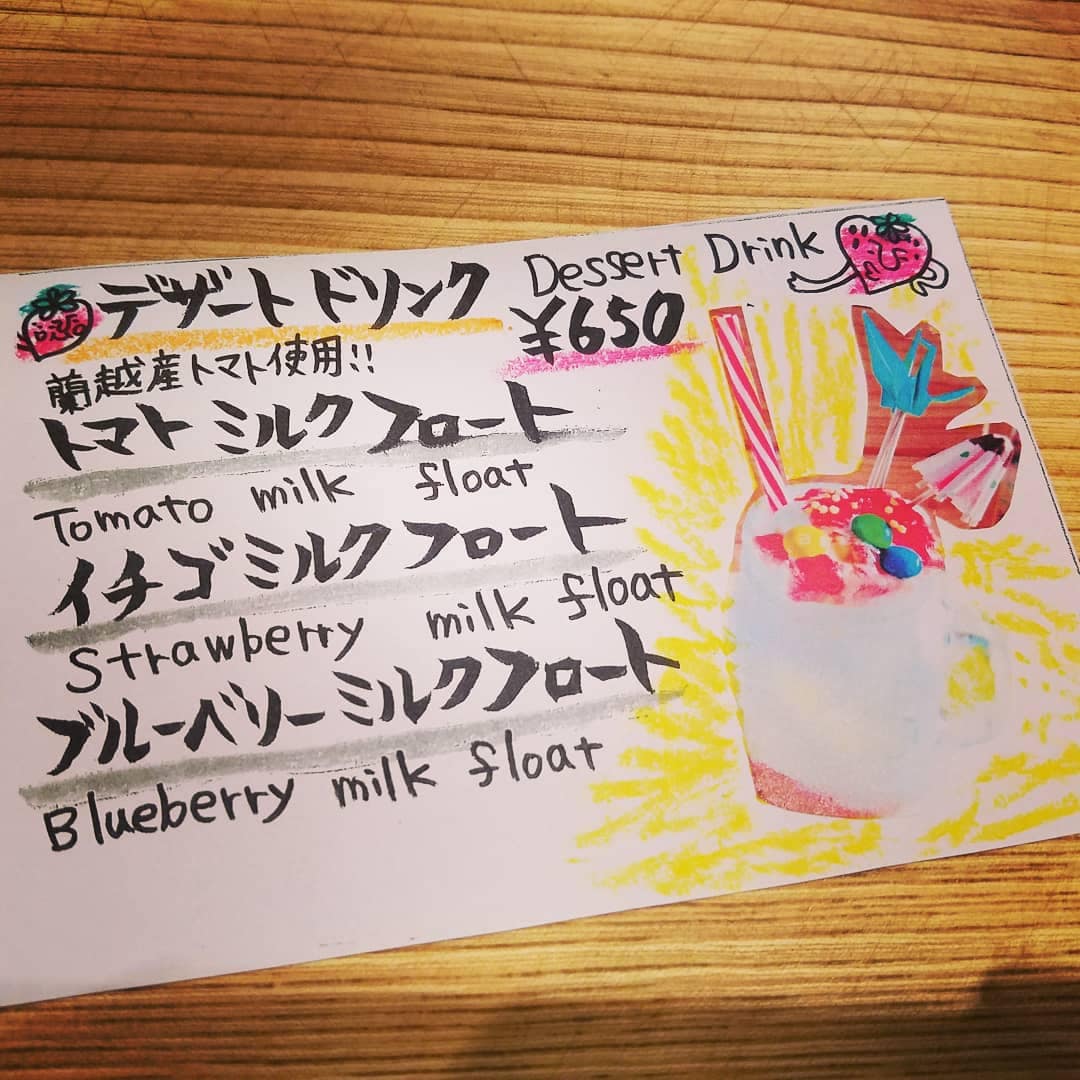 デザートドリンク Dessert Drink
¥650
蘭越産トマト使用!!
トマトミルクフロート
Tomato milk float
イチゴミルクフロート
Strawberry milk float
ブルーベリーミルクフロート
Blueberry milk float